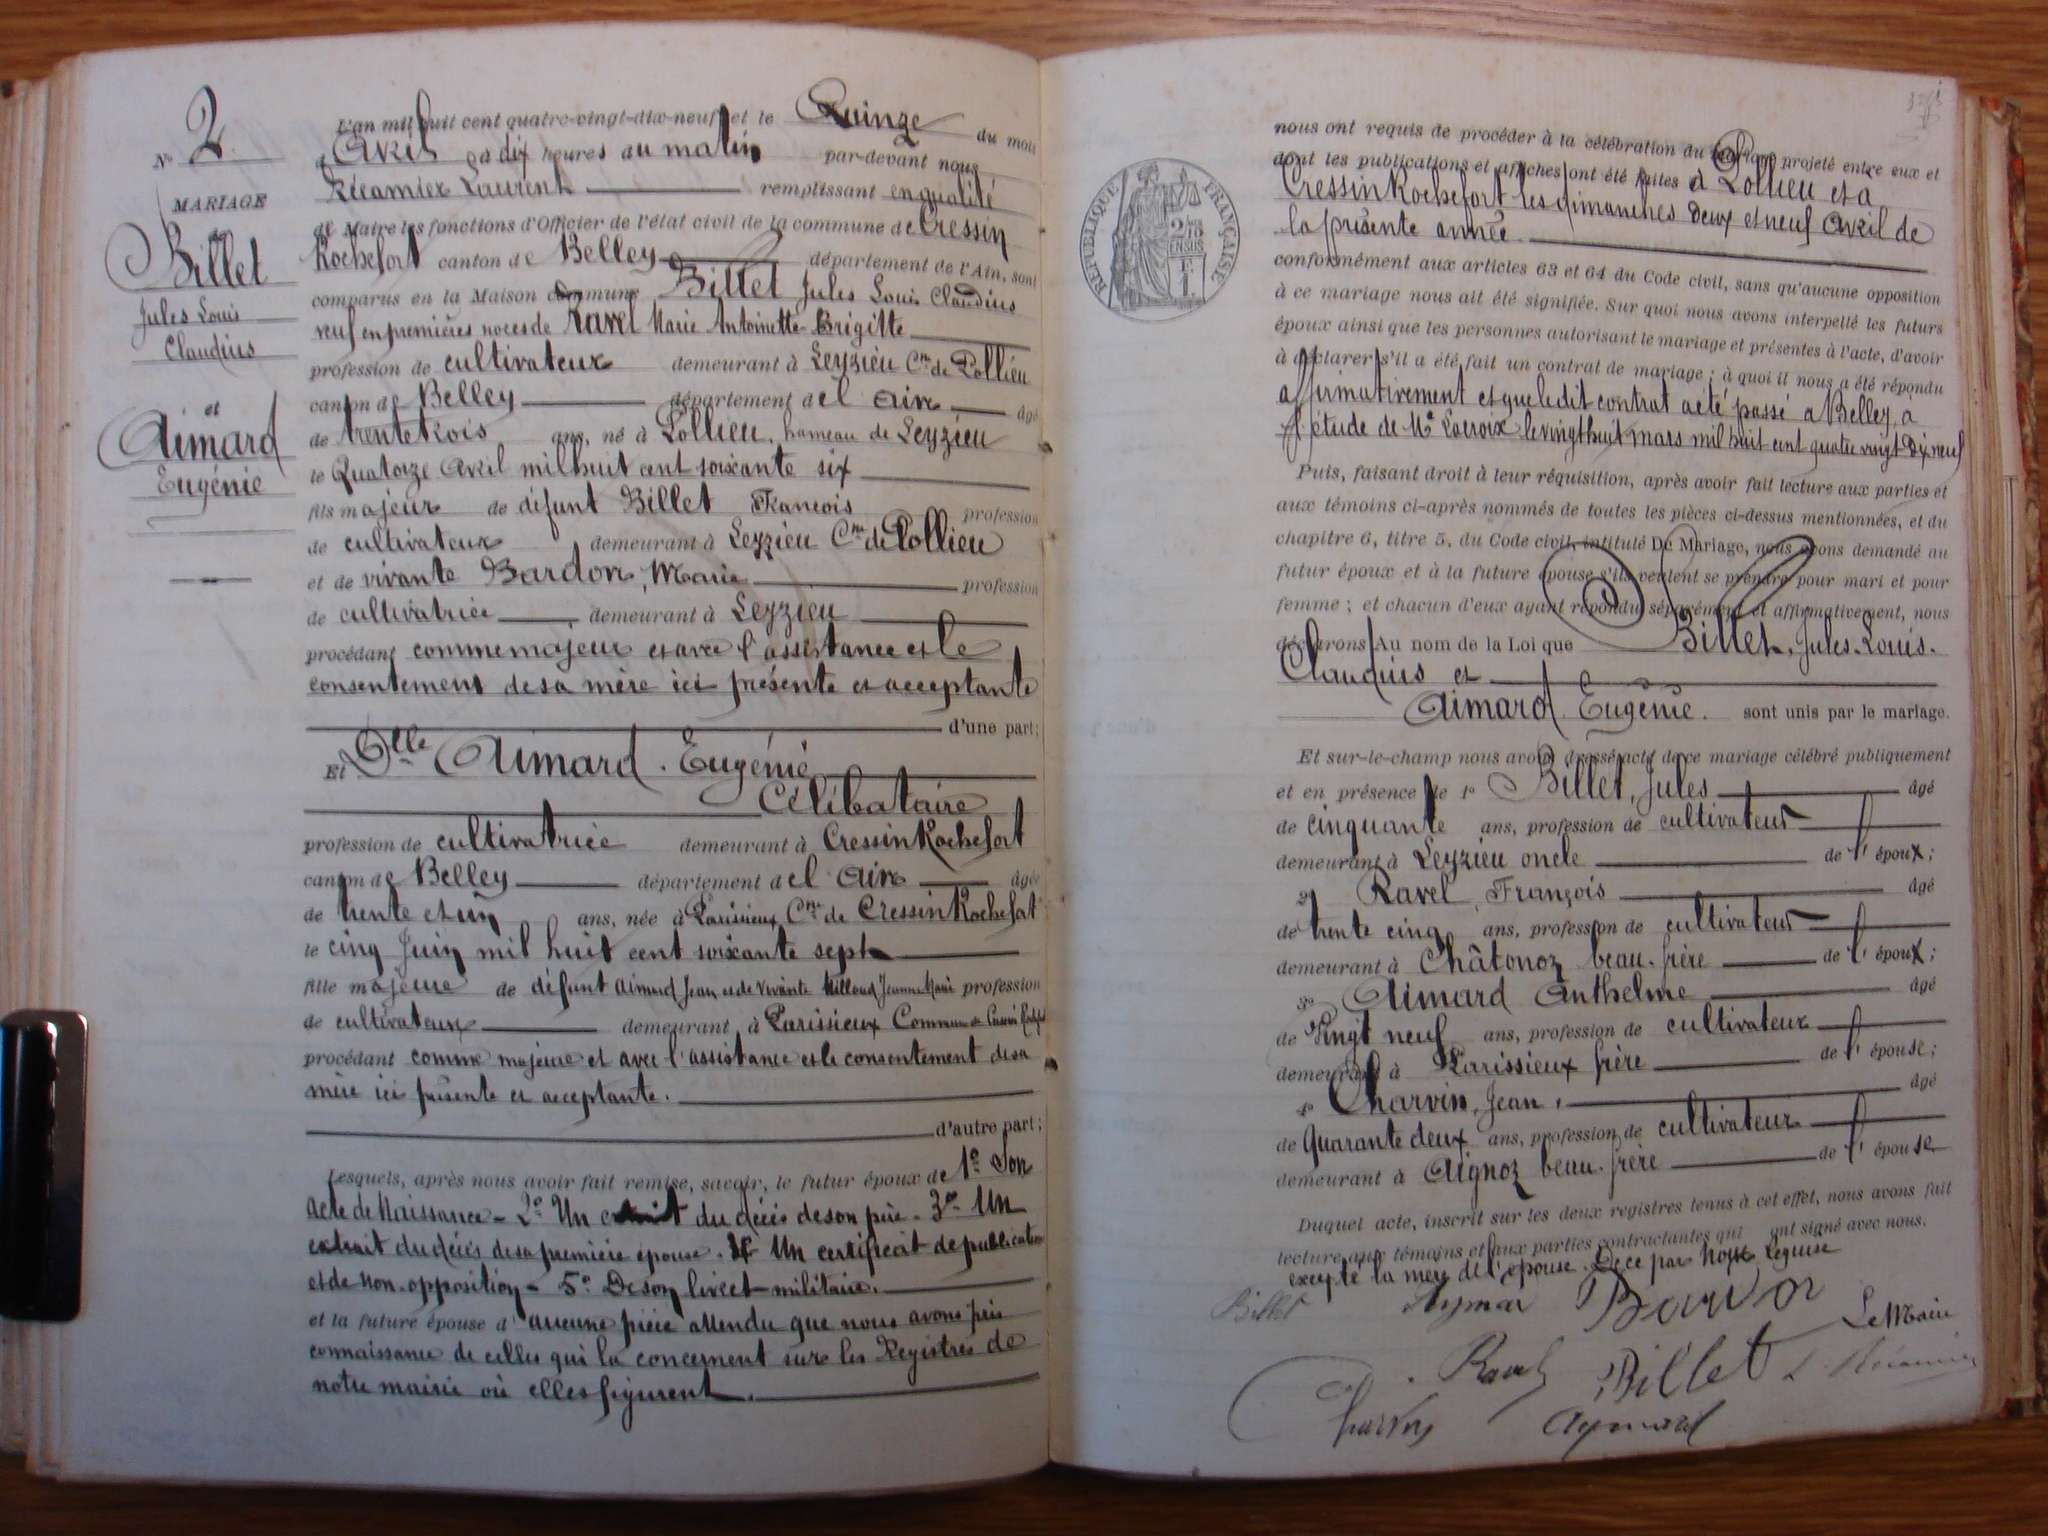 No 2
MARIAGE
de
Billet
Jules Louis
Claudius
et
Aimard
Eugénie
L'an mil huit cent quatre-vingt-dix-neuf et le Quinze du mois
d'Avril à dix heures du matin par-devant nous
Récamier Laurent remplissant en qualité
de Maire les fonctions d'Officier de l'état civil de la commune de Cressin
Rochefort canton de Belley département de l'Ain, sont
comparus en la Maison commune Billet Jules Louis Claudius
veuf en premières noces de Ravel Marie Antoinette Brigitte
profession de cultivateur demeurant à Leyzieu Cne de Pollieu
canton de Belley département de l'Ain âgé
de trente trois ans, né à Pollieu, hameau de Leyzieu
le Quatorze Avril mil huit cent soixante six
fils majeur de défunt Billet François profession
de cultivateur demeurant à Leyzieu Cne de Pollieu
et de vivante Bardon, Marie profession
de cultivatrice demeurant à Leyzieu
procédant comme majeur et avec l'assistance et le
consentement de sa mère ici présente et acceptante
d'une part;
Et Dlle Aimard Eugénie
Célibataire
profession de cultivatrice demeurant à Cressin Rochefort
canton de Belley département de l'Ain âgée
de trente et un ans, née à Parissieux Cne de Cressin Rochefort
le cinq Juin mil huit cent soixante sept
fille majeure de défunt Aimard Jean et de vivante Milloud Jeanne Marie profession
de cultivateur demeurant à Parissieux Commune de Cressin Rochefort
procédant comme majeure et avec l'assistance et le consentement de sa
mère ici présente et acceptante.
d'autre part;
Lesquels, après nous avoir fait remise, savoir, le futur époux de 1º Son
acte de Naissance - 2º Un extrait du décès de son père - 3º Un
extrait du décès de sa première épouse. 4º Un certificat de publication
et de non-opposition - 5º De son livret militaire.
et la future épouse d'aucune pièce attendu que nous avons pris
connaissance de celles qui la concernent sur les Registres de
notre mairie où elles figurent.
RÉPUBLIQUE FRANÇAISE
nous ont requis de procéder à la célébration du mariage projeté entre eux et
dont les publications et affiches ont été faites à Pollieu et à
Cressin Rochefort les dimanches deux et neuf Avril de
la présente année
conformément aux articles 63 et 64 du Code civil, sans qu'aucune opposition
à ce mariage nous ait été signifiée. Sur quoi nous avons interpellé les futurs
époux ainsi que les personnes autorisant le mariage et présentes à l'acte, d'avoir
à déclarer s'il a été fait un contrat de mariage; à quoi il nous a été répondu
affirmativement et que le dit contrat a été passé à Belley, à
l'étude de Me Lacroix le vingt huit mars mil huit cent quatre vingt dix neuf
Puis, faisant droit à leur réquisition, après avoir fait lecture aux parties et
aux témoins ci-après nommés de toutes les pièces ci-dessus mentionnées, et du
chapitre 6, titre 5, du Code civil, intitulé Du Mariage, nous avons demandé au
futur époux et à la future épouse s'ils veulent se prendre pour mari et pour
femme; et chacun d'eux ayant répondu séparément et affirmativement, nous
déclarons Au nom de la Loi que Billet, Jules Louis
Claudius et
Aimard Eugénie. sont unis par le mariage.
Et sur-le-champ nous avons dressé acte de ce mariage célébré publiquement
et en présence de 1º Billet, Jules âgé
de cinquante ans, profession de cultivateur
demeurant à Leyzieu oncle de l'époux;
2º Ravel, François âgé
de trente cinq ans, profession de cultivateur
demeurant à Châtonoz beau-frère de l'époux;
3º Aimard Anthelme âgé
de Vingt neuf ans, profession de cultivateur
demeurant à Parissieux frère de l'épouse;
4º Charvin, Jean, âgé
de Quarante deux ans, profession de cultivateur
demeurant à Aignoz beau-frère de l'épouse
Duquel acte, inscrit sur les deux registres tenus à cet effet, nous avons fait
lecture aux témoins et aux parties contractantes qui ont signé avec nous.
excepté la mère de l'épouse. De ce par nous requise
Billet Aymar Bardon
Le Maire
Ravel Billet L Récamier
Charvin Aymard